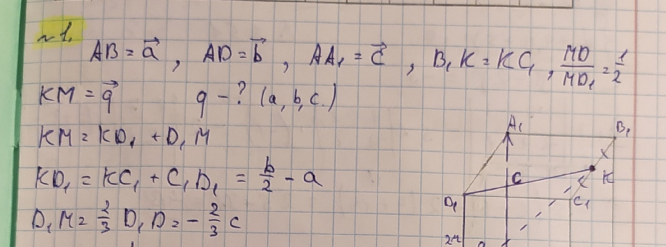 №1.
AB = a⃗, AD = b⃗, AA₁ = c⃗, B₁K = KC₁, MD/MD₁ = 1/2
KM = q⃗ q - ? (a, b, c.)
KM = KD₁ + D₁M
KD₁ = KC₁ + C₁D₁ = b/2 - a
D₁M = 2/3 D₁D = - 2/3 c
A₁ B₁
K
D₁ C₁